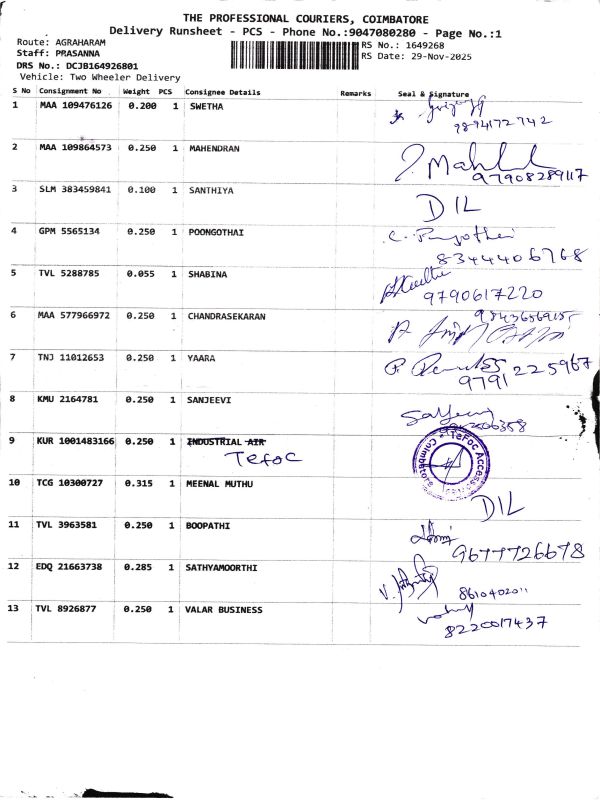 THE PROFESSIONAL COURIERS, COIMBATORE
Delivery Runsheet - PCS - Phone No.:9047080280 - Page No.:1
Route: AGRAHARAM
Staff: PRASANNA
DRS No.: DCJB164926801
Vehicle: Two Wheeler Delivery
RS No.: 1649268
RS Date: 29-Nov-2025
S No Consignment No Weight PCS Consignee Details Remarks Seal & Signature
1 MAA 109476126 0.200 1 SWETHA
9894172742
2 MAA 109864573 0.250 1 MAHENDRAN
97908289117
3 SLM 383459841 0.100 1 SANTHIYA DIL
4 GPM 5565134 0.250 1 POONGOTHAI
8344406768
5 TVL 5288785 0.055 1 SHABINA
9790617220
6 MAA 577966972 0.250 1 CHANDRASEKARAN
7 TNJ 11012653 0.250 1 YAARA
9791225967
8 KMU 2164781 0.250 1 SANJEEVI
9 KUR 1001483166 0.250 1 INDUSTRIAL AIR
Tefoc
TeFoc Access
Coimbatore
10 TCG 10300727 0.315 1 MEENAL MUTHU DIL
11 TVL 3963581 0.250 1 BOOPATHI
9677726678
12 EDQ 21663738 0.285 1 SATHYAMOORTHI
8610402011
13 TVL 8926877 0.250 1 VALAR BUSINESS
8220017437